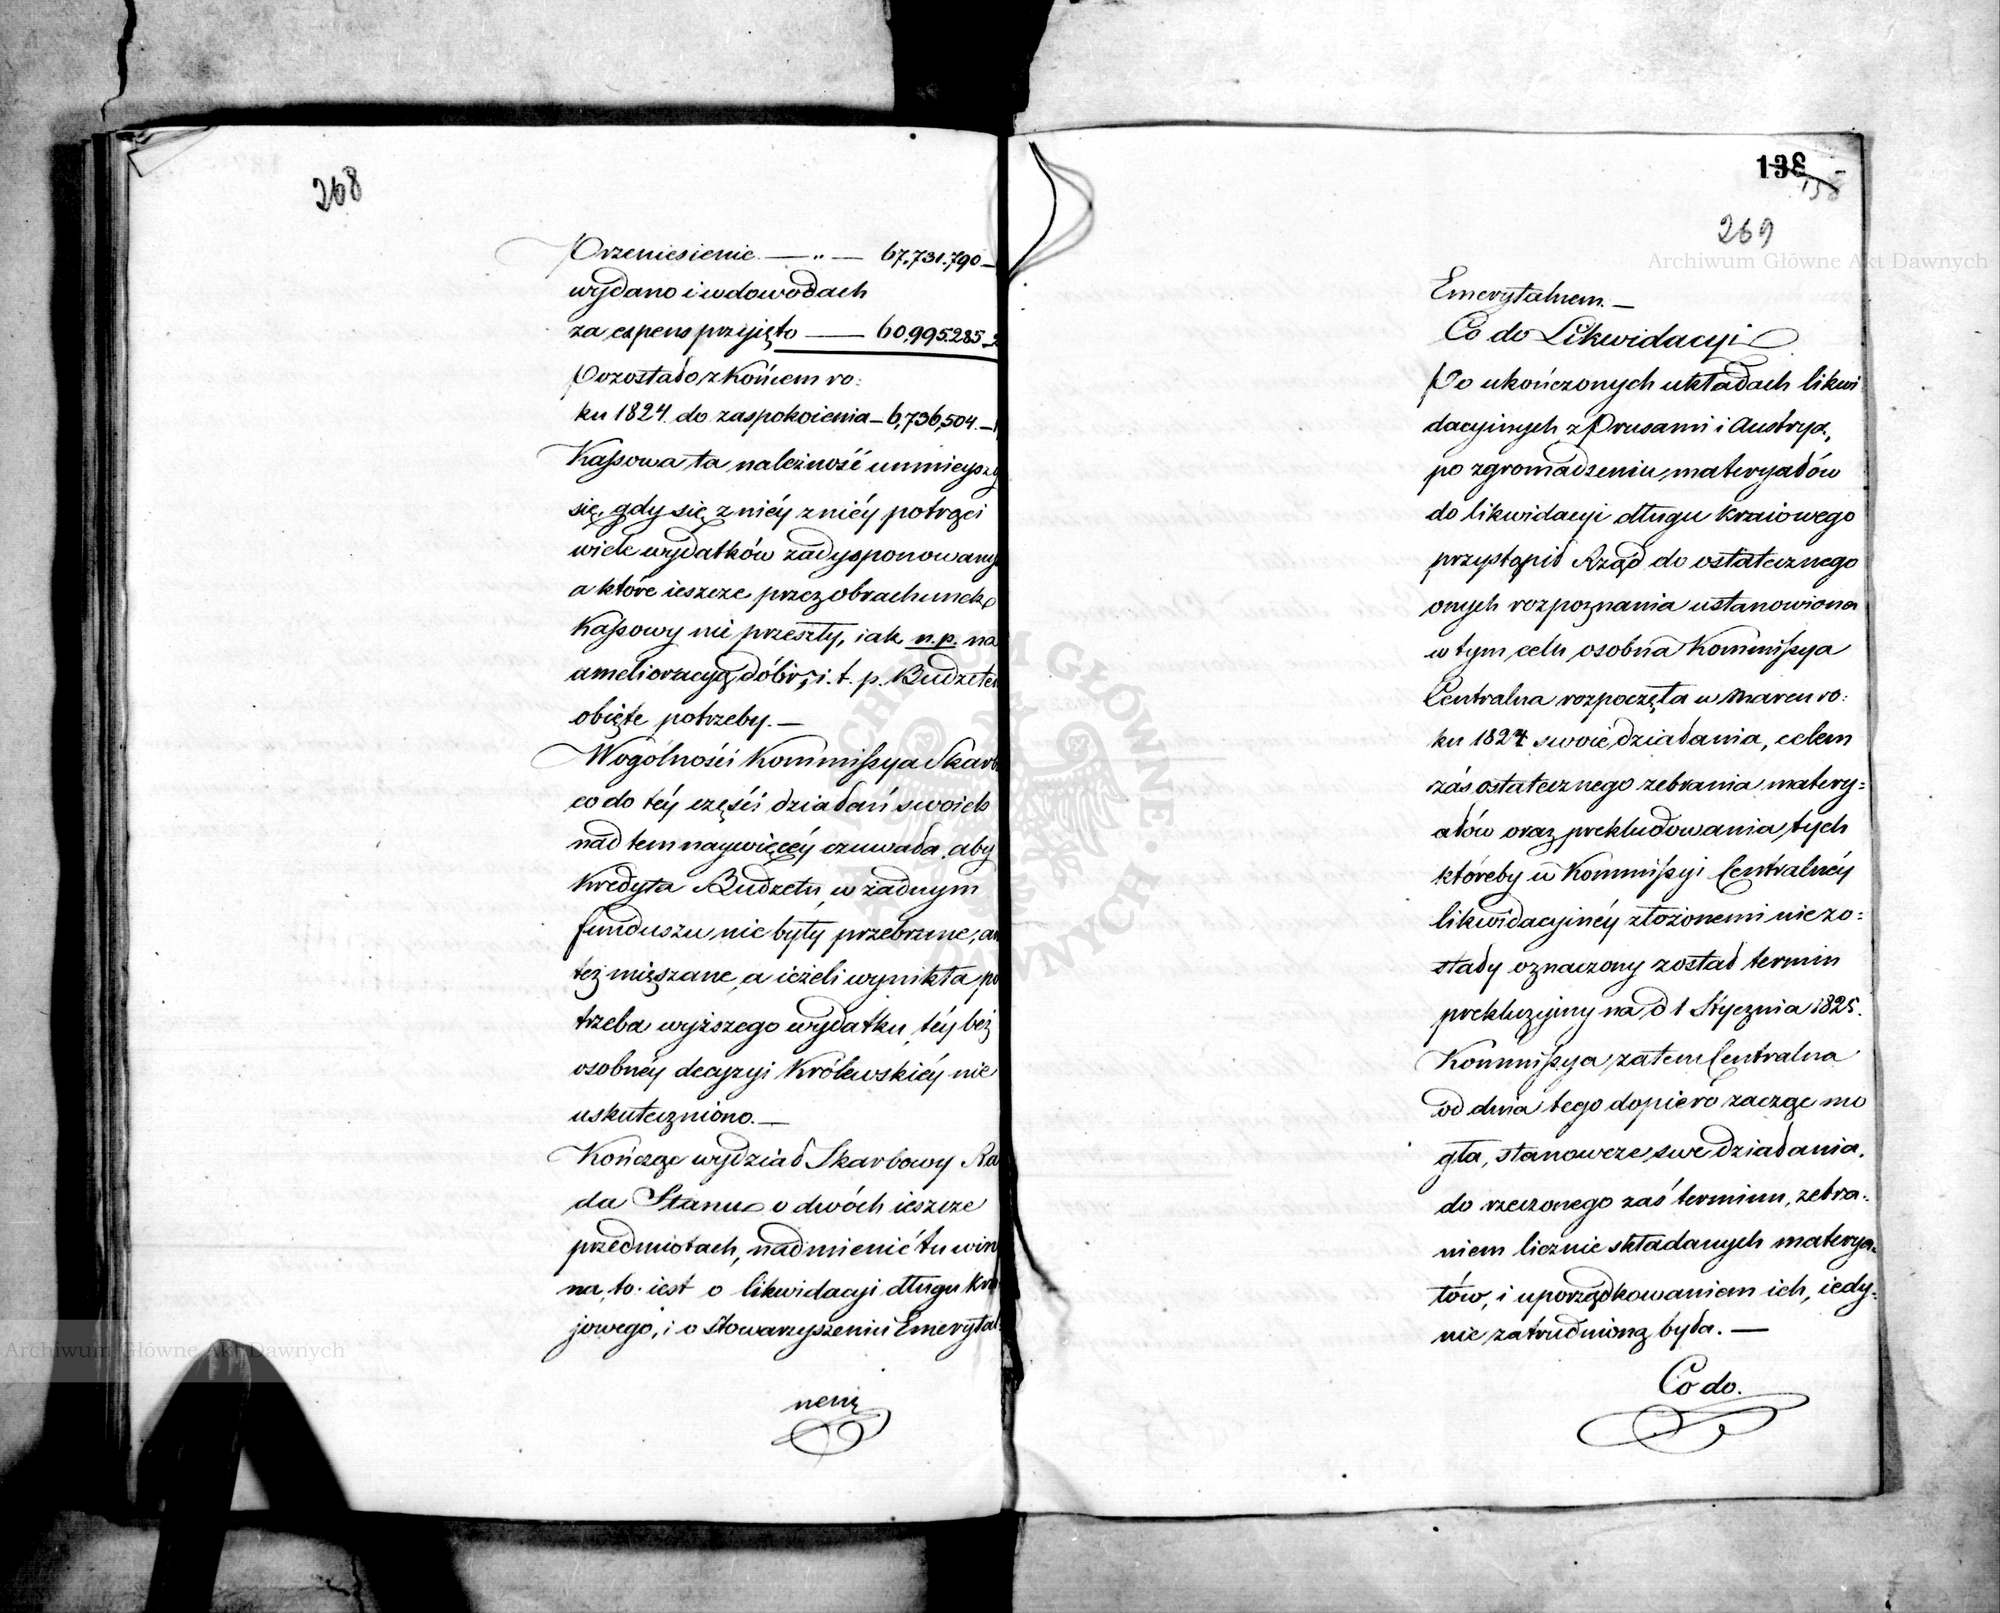 268
Przeniesienie. — „ — 67,731.790 —
wydano i w dowodach
za expens przyjęto — 60,995.285 —
Pozostało z końcem ro:
ku 1824. do zaspokoienia — 6,736,504. —
Kassowa ta należność umnieyszy
się, gdy się z niéy z niéy potrąci
wiele wydatków zadysponowany
a które ieszcze przez obrachunek
Kassowy nie przeszły, iak n.p. na
amelioracyą dóbr, i. t. p. Budżetem
obięte potrzeby. —
W ogólności Kommissya Skarb
co do téy części działań swoich
nad tem naywięcéy czuwała, aby
kredyta Budżetu, w żadnym
funduszu nie były przebrane, an
też mięszane, a ieżeli wynikła po
trzeba wyższego wydatku, téy béz
osobnéy decyzyi Królewskiéy nie
uskuteczniono. —
Kończąc wydział Skarbowy Ra
da Stanu o dwóch ieszcze
przedmiotach, nadmienić tu win
na, to iest o likwidacyi długu kra
jowego, i o Stowarzyszeniu Emerytal
nem
138
138
269
Emerytalnem. —
Co do Likwidacyi
Po ukończonych układach likwi
dacyinych z Prusami i Austryą,
po zgromadzeniu materyałów
do likwidacyi długu kraiowego
przystąpił Rząd do ostatecznego
onych rozpoznania ustanowiona
w tym celu osobna Kommissya
Centralna rozpoczęła w Marcu ro:
ku 1824 swoie działania, celem
zás ostatecznego zebrania matery=
ałów oraz prekludowania tych
któreby w Kommissyi Centralnéy
likwidacyinéy złożonemi nie zo:
stały oznaczony został termin
prekluzyiny na d 1 Stycznia 1825.
Kommissya zatem Centralna
od dnia tego dopiero zacząć mo
gła, stanowcze swe działania,
do rzeczonego zaś terminu, zebra:
niem licznie składanych materya:
łów, i uporządkowaniem ich, iedy:
nie zatrudnioną była. —
Co do.
Archiwum Główne Akt Dawnych
Archiwum Główne Akt Dawnych
ARCHIWUM GŁÓWNE AKT DAWNYCH